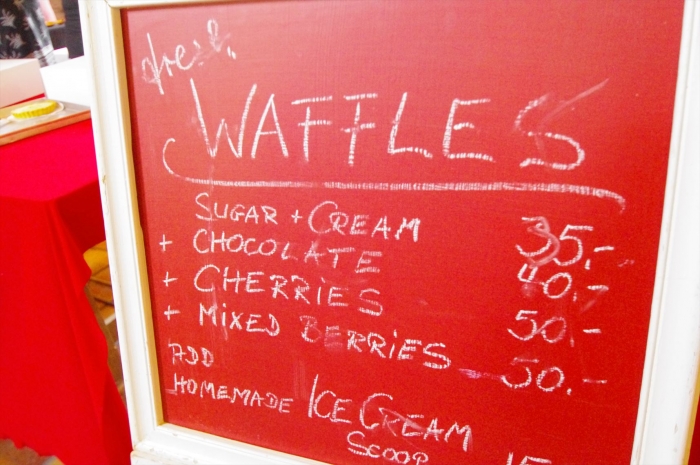 fresh
WAFFLES
SUGAR + CREAM 35,-
+ CHOCOLATE 40,-
+ CHERRIES 50,-
+ MIXED BERRIES 50,-
ADD
HOMEMADE ICE CREAM
SCOOP 15